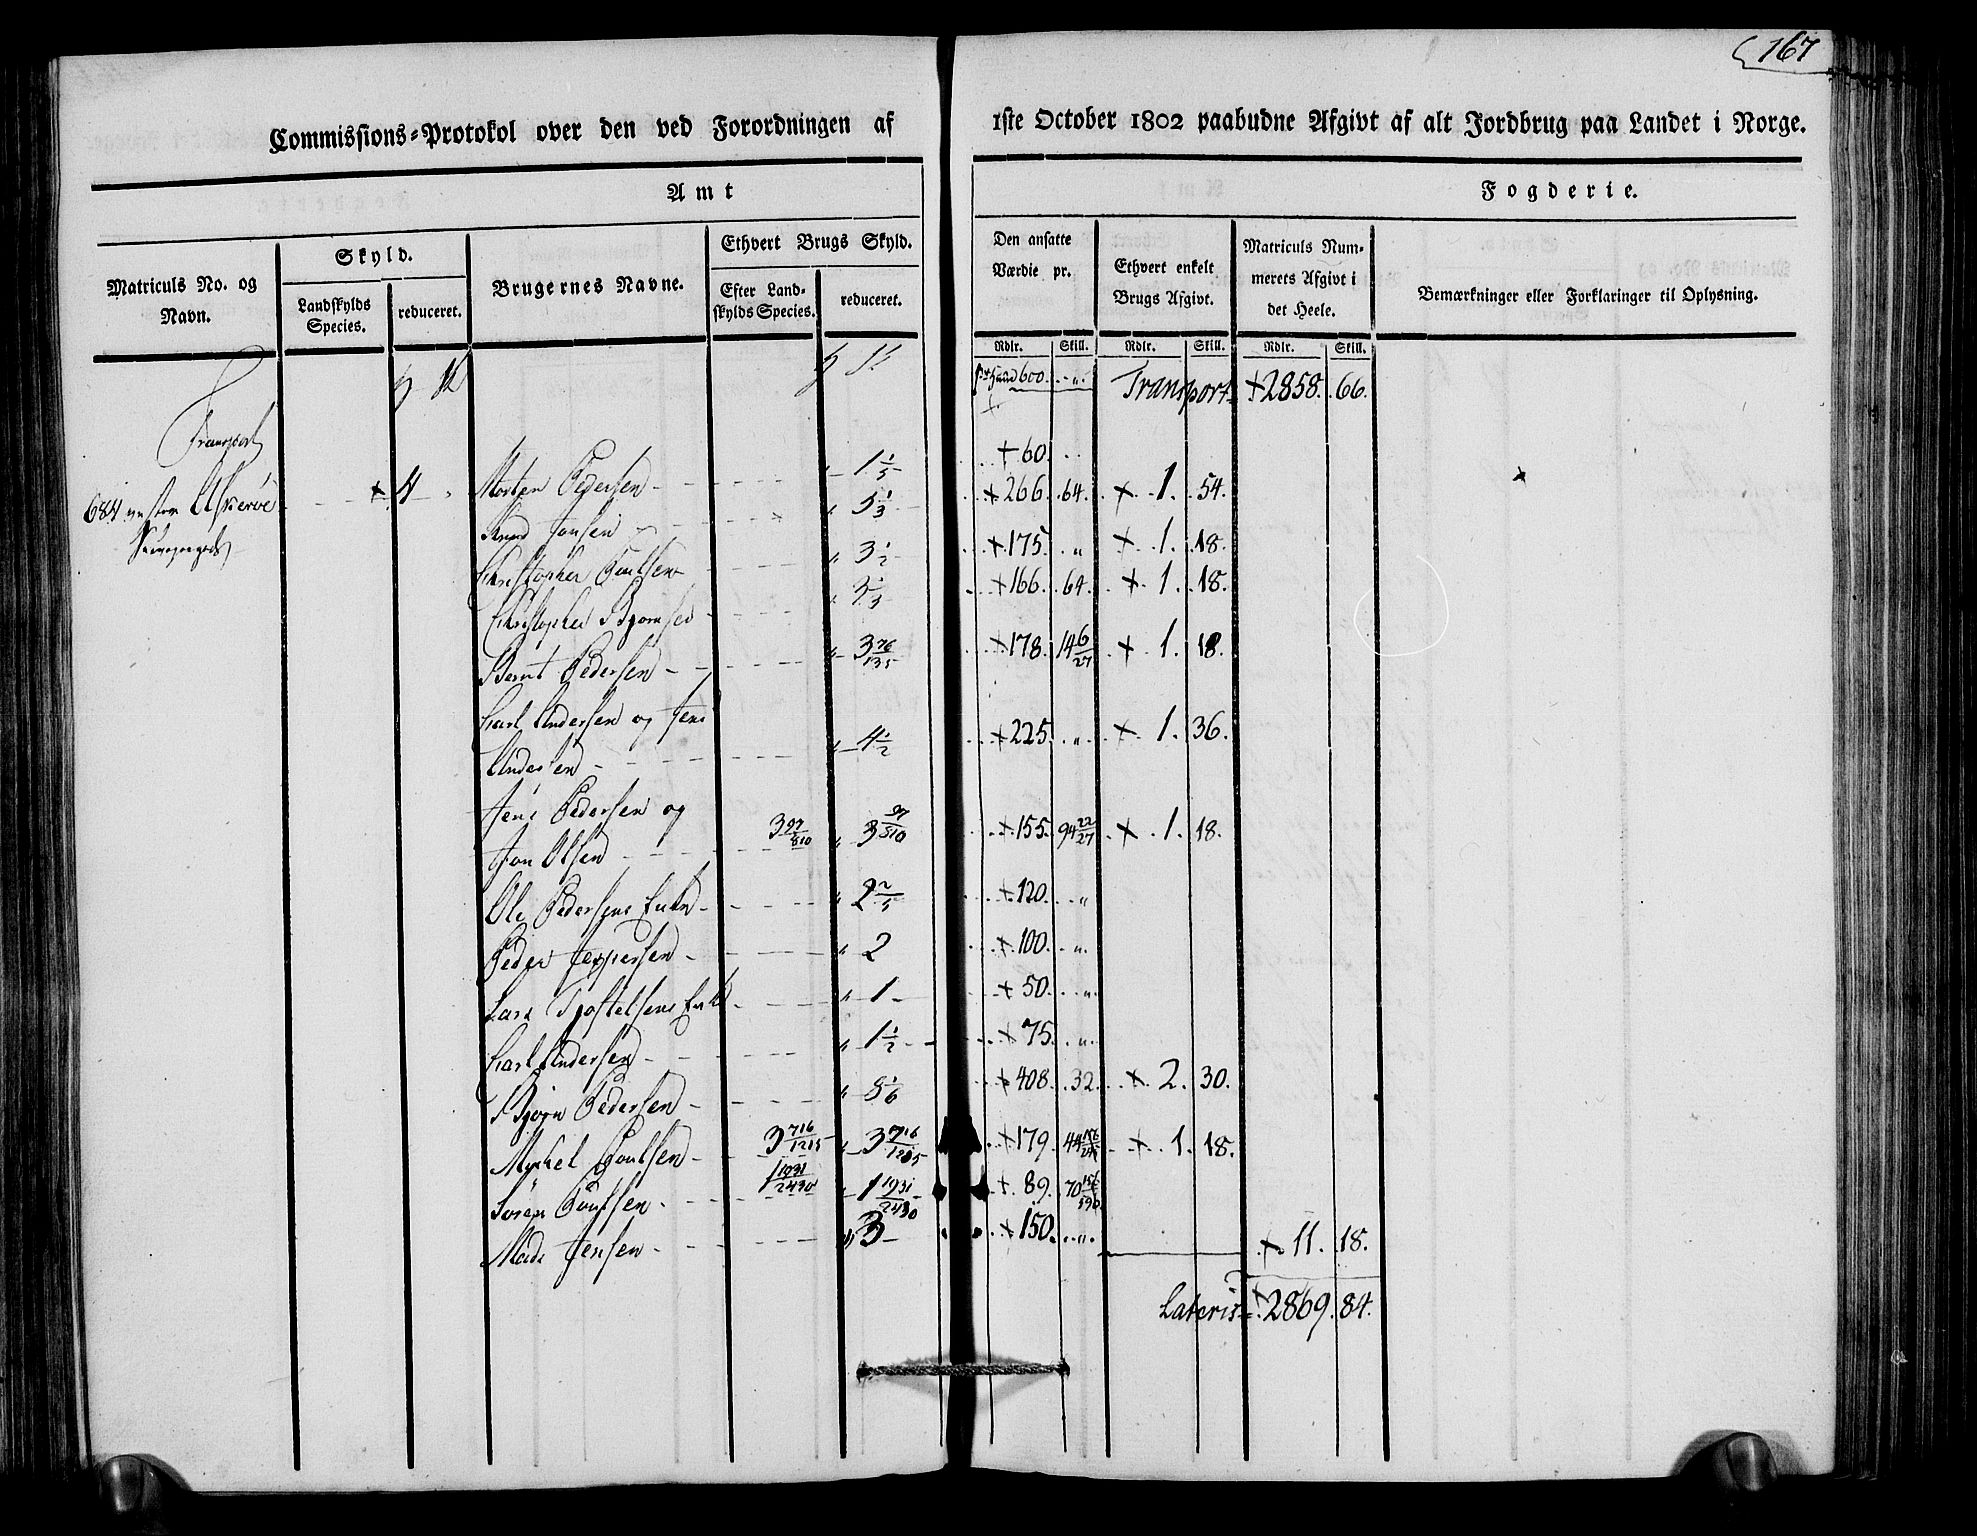 167
Commissions-Protokol over den ved Forordningen af 1ste October 1802 paabudne Afgivt af alt Jordbrug paa Landet i Norge.
Amt Fogderie.
Matriculs No. og Navn.
Skyld.
Landskylds Species.
reduceret.
Brugernes Navne.
Ethvert Brugs Skyld.
Efter Landskylds Species.
reduceret.
Den ansatte Værdie pr.
Ethvert enkelt Brugs Afgivt.
Matriculs Nummerets Afgivt i det Heele.
Bemærkninger eller Forklaringer til Oplysning.
Rdlr. Skill. Rdlr. Skill. Rdlr. Skill.
600. „ Transport +2858. 66.
Transport
+60.
684 Askerøe + 4 Morten Pedersen 1 1/5 +266. 64. + 1. 54.
Knud Jensen 5 1/3 +175. „ + 1. 18.
Christopher Poulsen 3 1/2 +166. 64. + 1. 18.
Christopher Bjørnsen 3 1/3
Bernt Pedersen 3 76/135 +178. 14 6/27 + 1. 18.
Carl Andersen og Jens
Andersen 4 1/2 +225. „ + 1. 36.
Jens Pedersen og
Jon Olsen 3 97/810 3 97/810 +155. 94 22/27 + 1. 18.
Ole Pedersens Enke 2 2/5 +120. „
Peder Jeppersen 2 +100. „
Lars Tjostelsens Enke 1 +50. „
Carl Andersen 1 1/2 +75. „
Bjørn Pedersen 8 1/6 +408. 32. + 2. 30.
Mickel Poulsen 3 716/1215 3 716/1215 +179. 44 + 1. 18.
Søren Poulsen 1 1931/2430 1 1931/2430 +89. 70
Mads Jensen 3 +150. „
+ 11. 18.
Lateris +2869. 84.